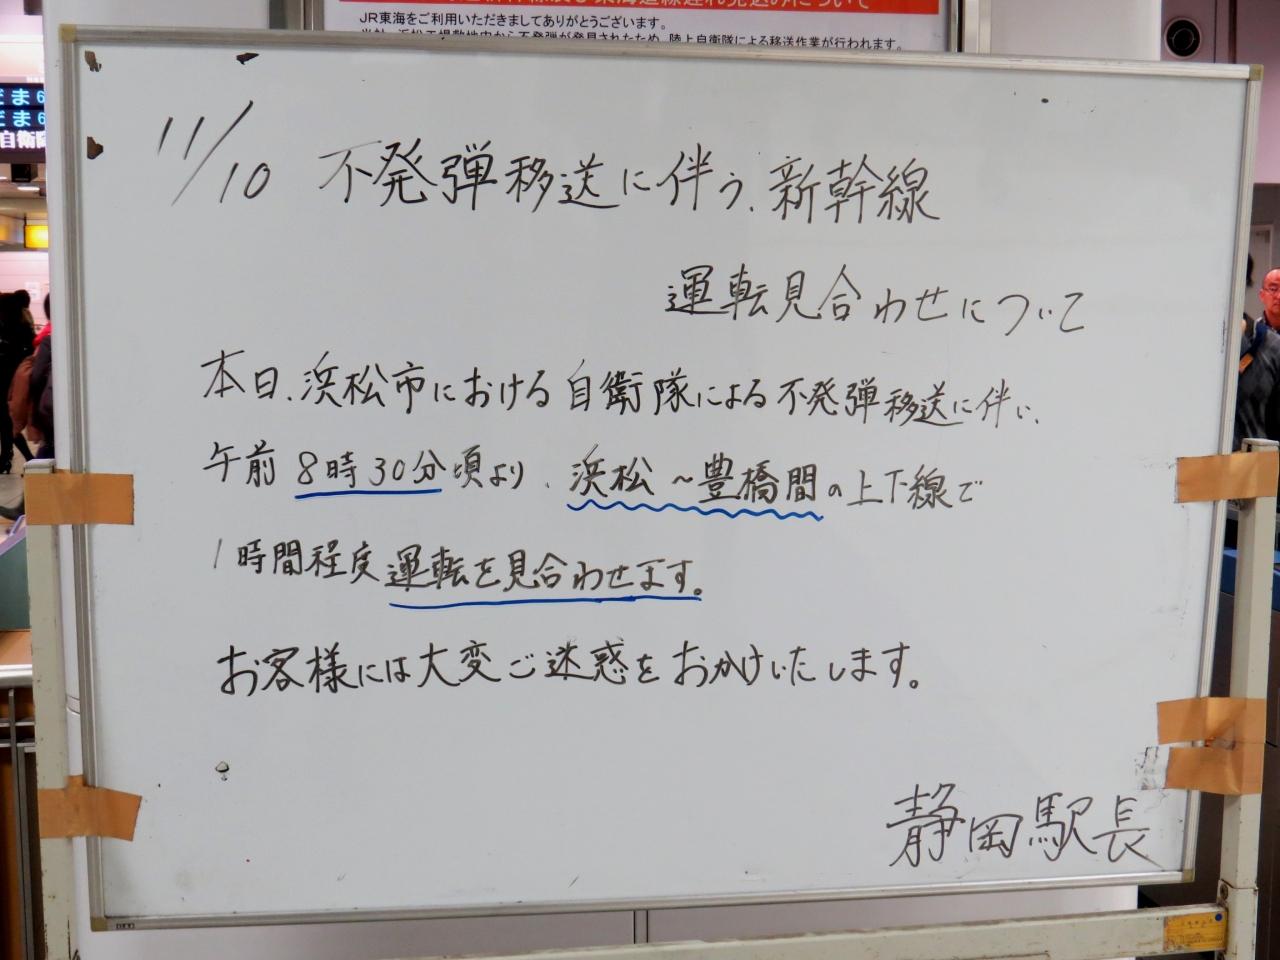 JR東海をご利用いただきましてありがとうございます。
不発弾が発見されたため、陸上自衛隊による移送作業が行われます。
だま6
だま6
自衛隊
11/10 不発弾移送に伴う、新幹線
運転見合わせについて
本日、浜松市における自衛隊による不発弾移送に伴い、
午前8時30分頃より、浜松～豊橋間の上下線で
1時間程度運転を見合わせます。
お客様には大変ご迷惑をおかけいたします。
静岡駅長